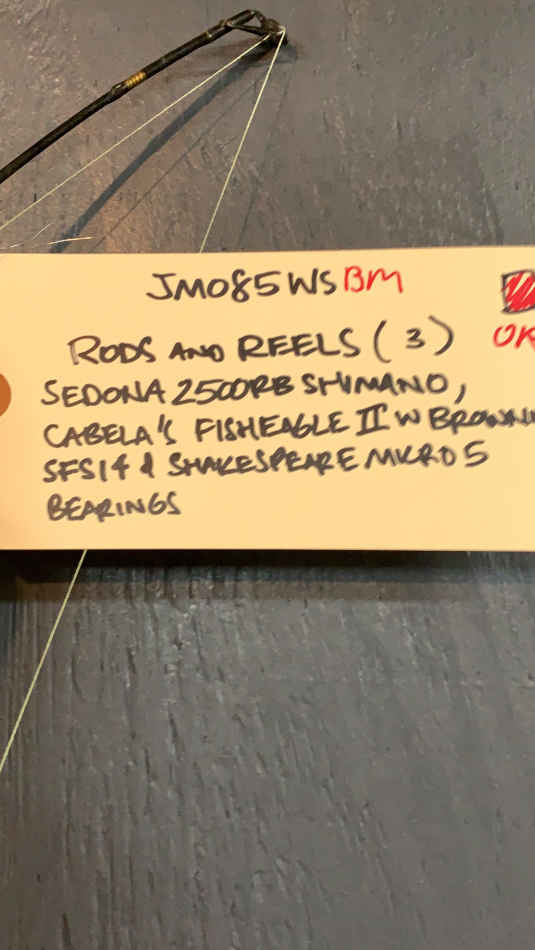 JM085WSBM
OK
RODS AND REELS (3)
SEDONA 2500RB SHIMANO,
CABELA'S FISHEAGLE II W BROWNI
SFS14 & SHAKESPEARE MICRO 5
BEARINGS